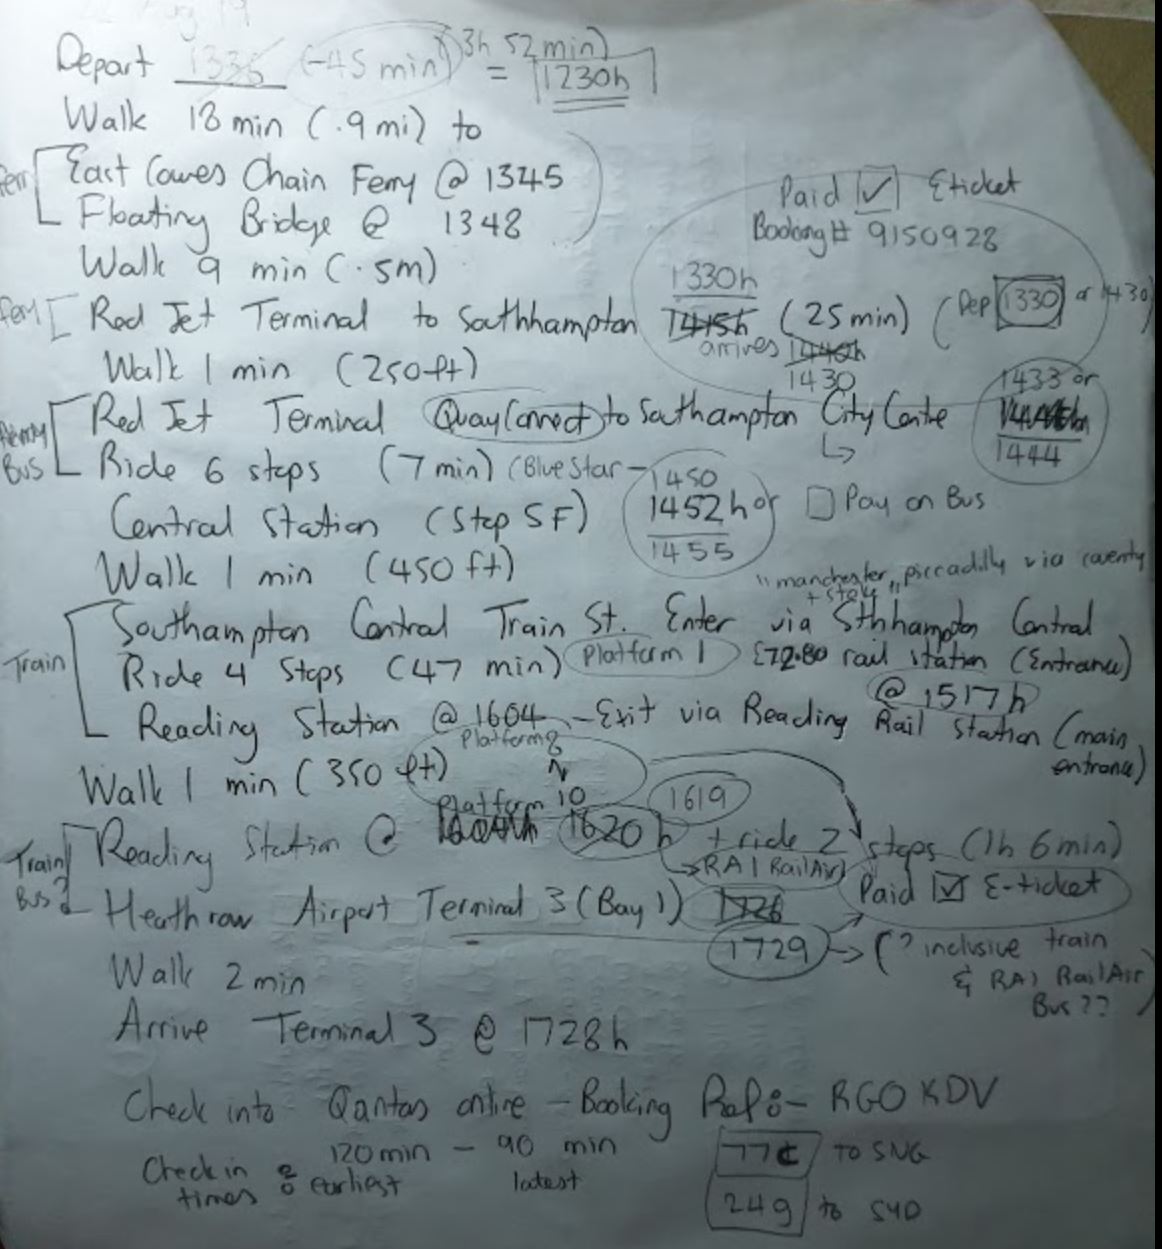 Aug 19
Depart 1335 (-45 min) (3h 52min) = 1230h
Walk 18 min (.9 mi) to
Ferry East Cowes Chain Ferry @ 1345
Floating Bridge @ 1348
Paid ☑ Eticket
Booking# 9150928
Walk 9 min (.5m)
1330h
Ferry Red Jet Terminal to Southhampton 1415h (25min) (Dep 1330 or 1430)
arrives 1440h
Walk 1 min (250ft) 1430
1433 or
Red Jet Terminal Quay Connect to Southampton City Centre
1444
Bus Ride 6 stops (7 min) (Blue Star - 1450
Central Station (Stop 5F) 1452h or ☐ Pay on Bus
1455
Walk 1 min (450 ft)
"manchester piccadilly via coventy
+ stoke"
Southampton Central Train St. Enter via Sthhampton Central
Train Ride 4 Stops (47 min) Platform 1 £72.80 rail station (Entrance)
@ 1517h
Reading Station @ 1604 - Exit via Reading Rail Station (main entrance)
Platform 8
Walk 1 min (350 ft)
Platform 10 1619
Reading Station @ 1620h + ride 2 stops (1h 6min)
Train Bus? → RA1 RailAir) Paid ☑ E-ticket
Heathrow Airport Terminal 3 (Bay 1) 1726
1729 → (? inclusive train
& RA1 RailAir
Bus ??)
Walk 2 min
Arrive Terminal 3 @ 1728h
Check into Qantas online - Booking Ref:- RGOKDV
Check in times : 120min earliest - 90 min latest
77C to SNG
24g to SYD